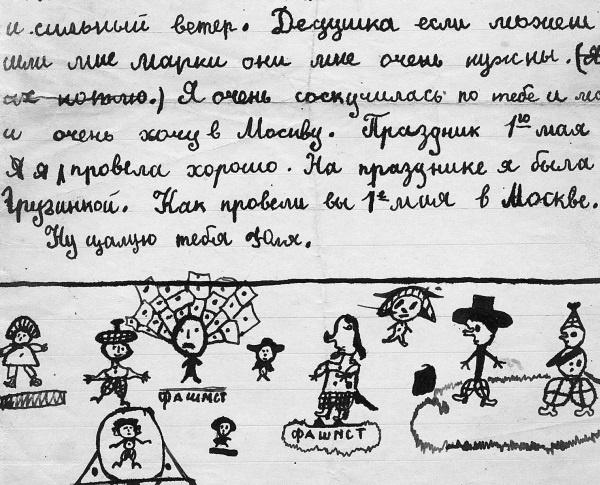 и сильный ветер. Дедушка если можеш
шли мне марки они мне очень нужны. (Я
их коплю.) Я очень соскучилась по тебе и
и очень хочу в Москву. Праздник 1ᵒ мая
Я я провела хорошо. На празднике я была
Грузинкой. Как провели вы 1ᵉ мая в Москве.
Ну щалую тебя Юля.
ФАШИСТ
ФАШИСТ